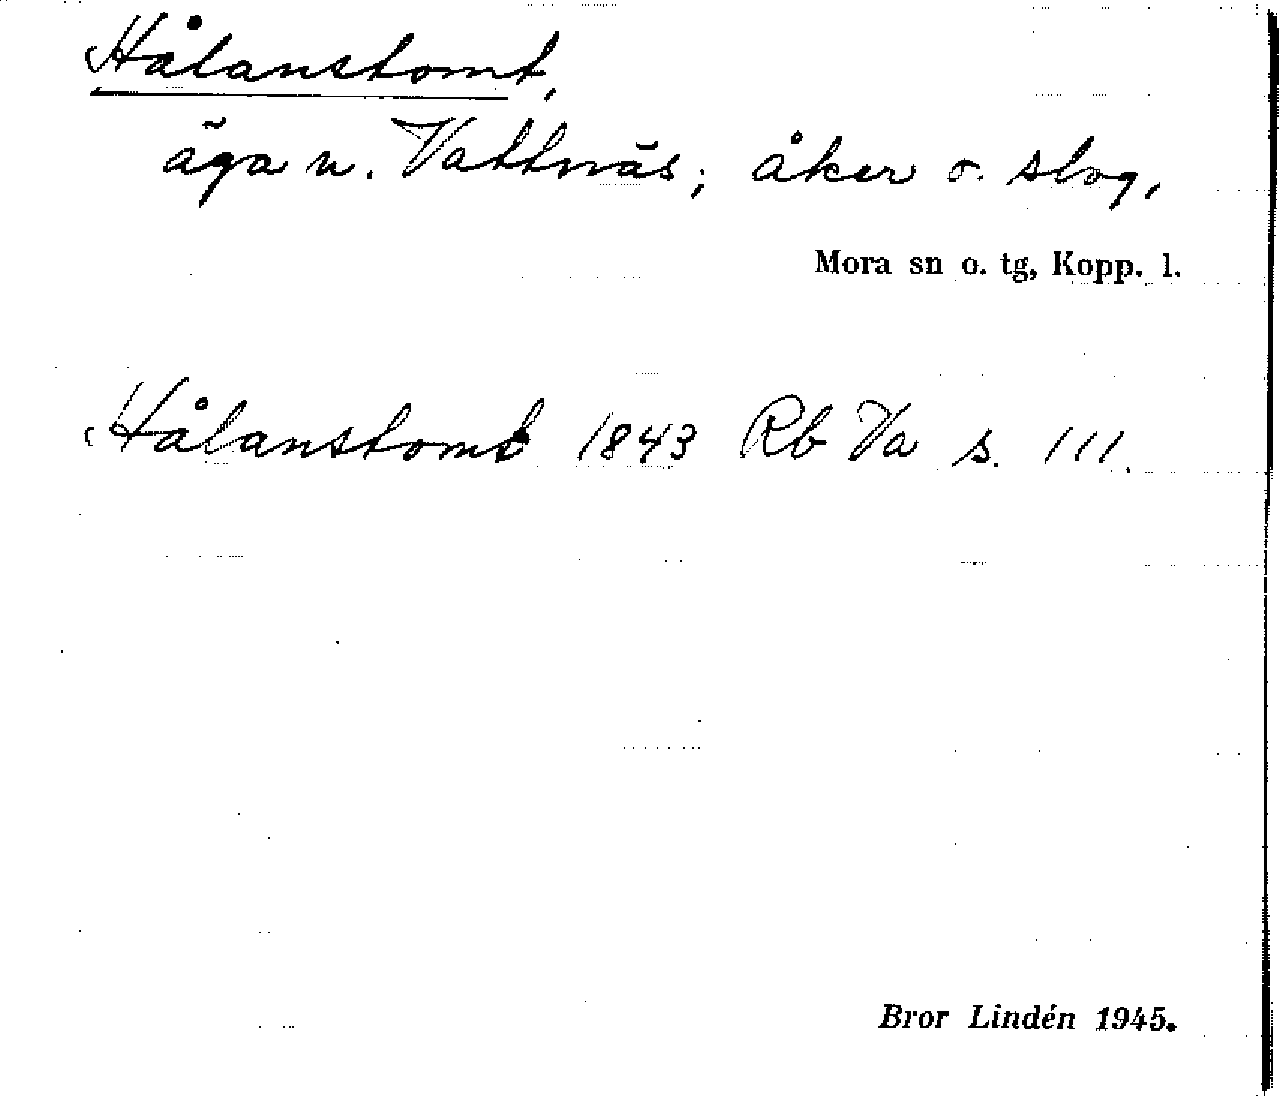 Hålanstomt,
äga n. Vattnäs; åker o. slog,
Mora sn o. tg, Kopp. l.
Hålanstomt 1843 Rb Va s. 111.
Bror Lindén 1945.